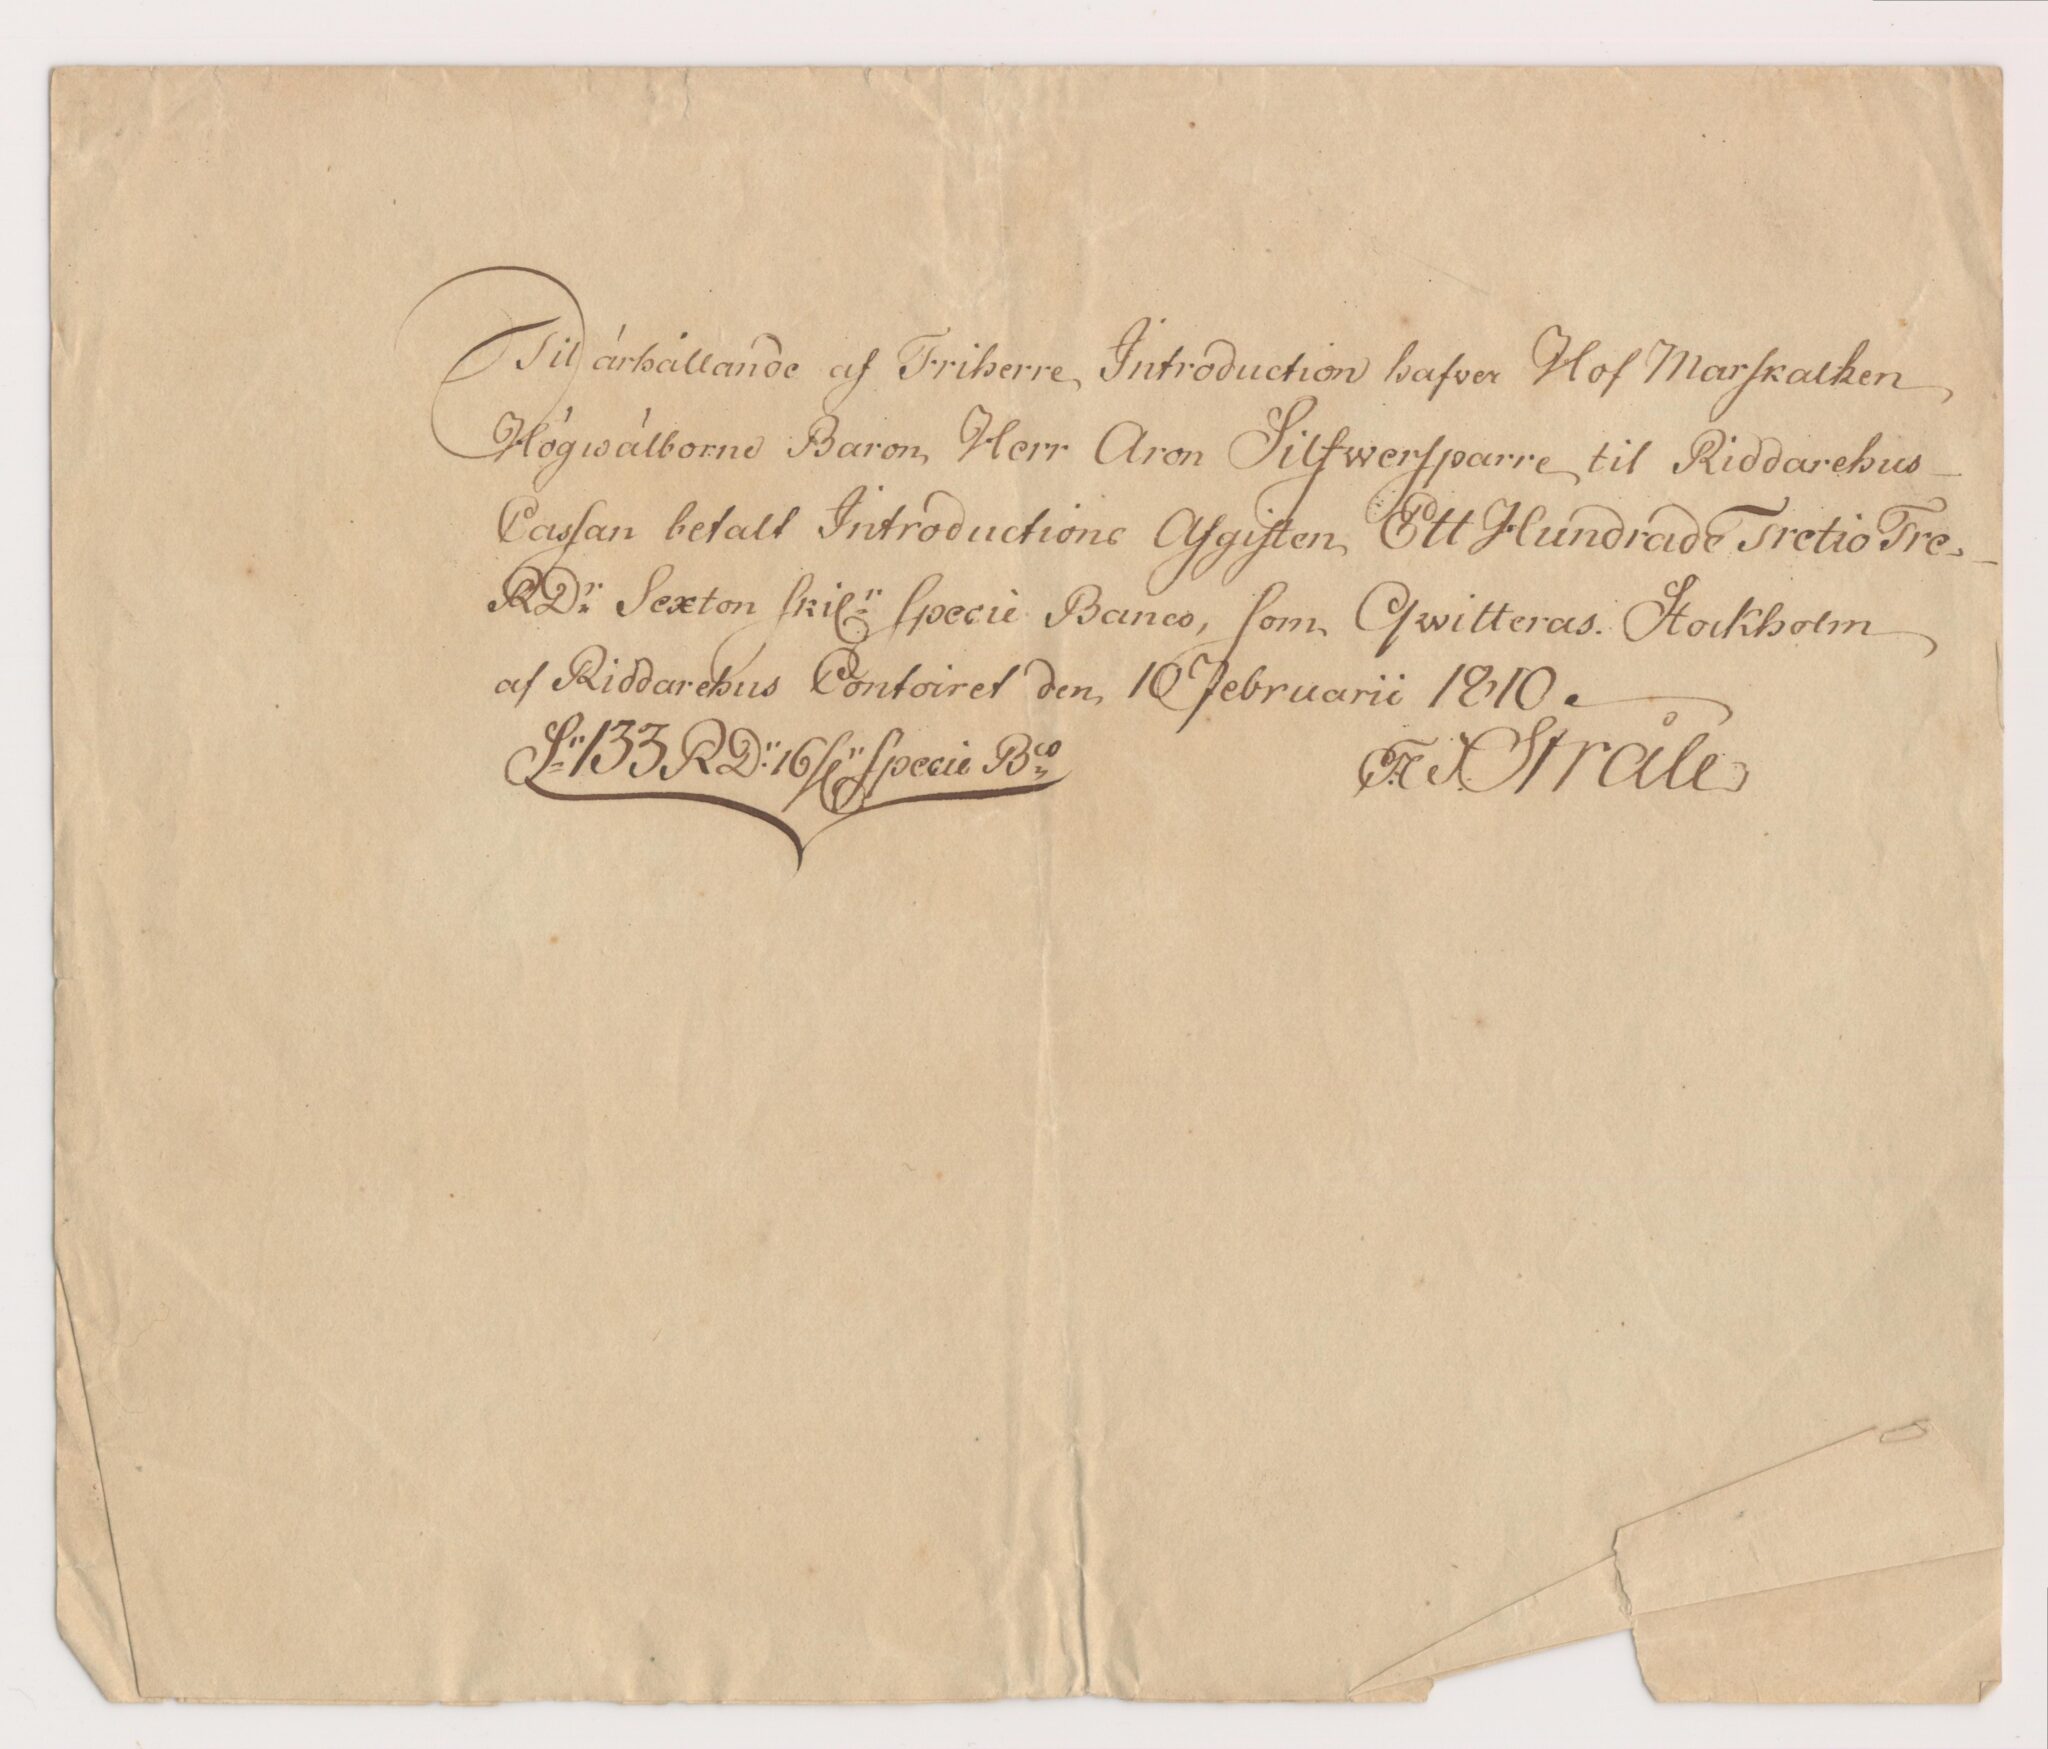 Til ärhållande af Friherre Introduction hafver Hof Marskalken
Högwälborne Baron Herr Aron Silfwersparre til Riddarehus
Cassan betalt Introductions Afgiften Ett Hundrade Tretio Tre
RDr Sexton skilr Specie Banco, som Qwitteras. Stockholm
af Riddarehus Contoiret den 10 Februarii 1810.
Sr 133 RDr 16 sr Specie Bco
Stråle